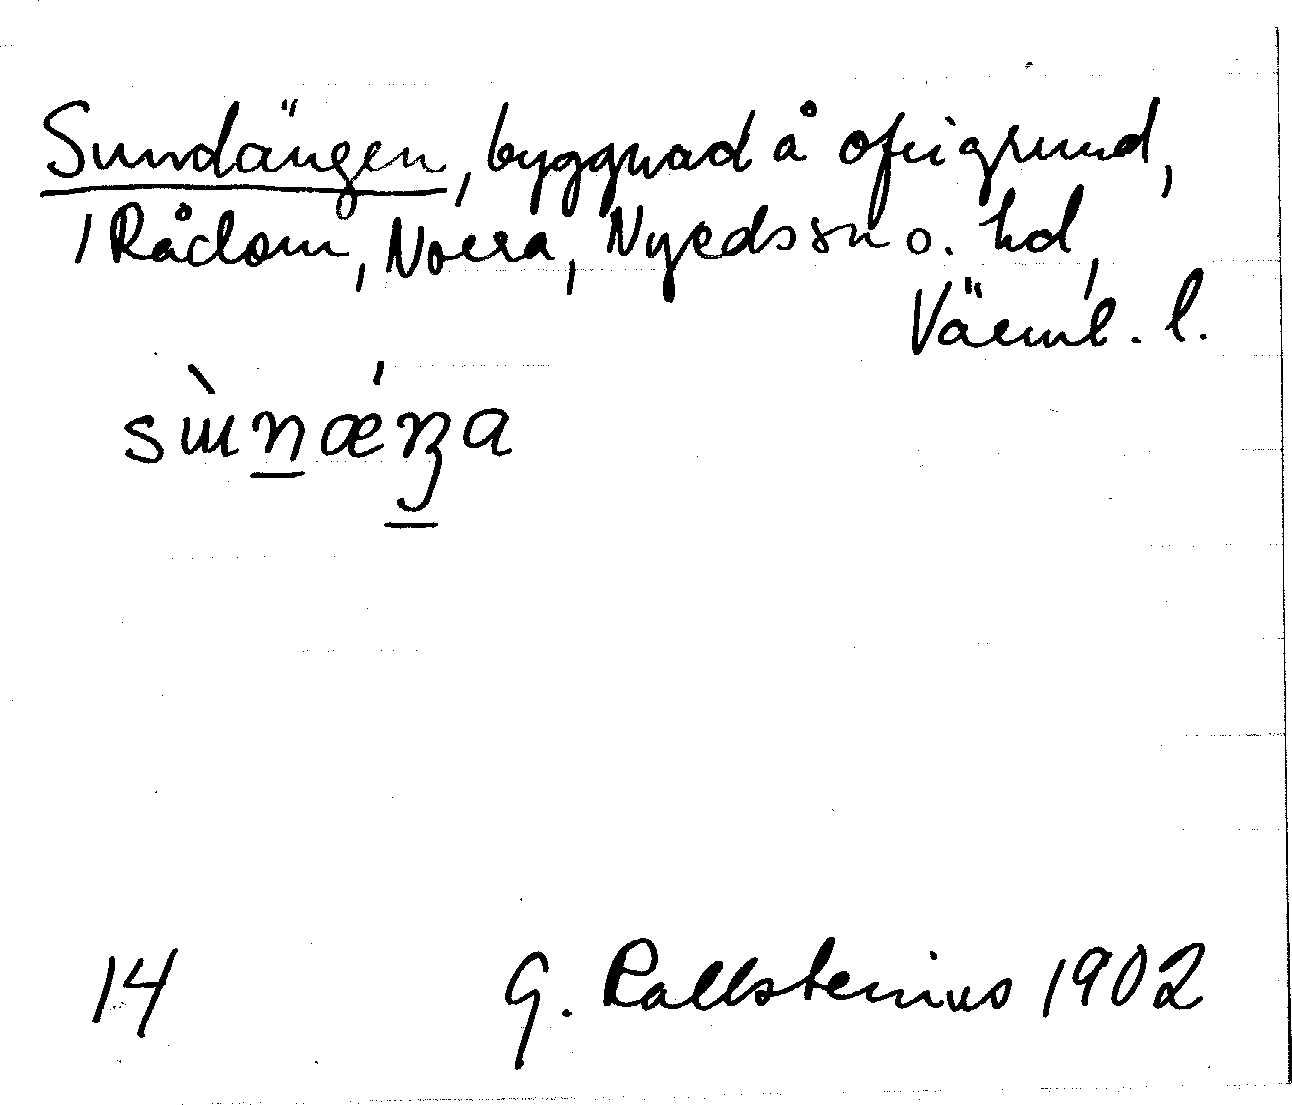 Sundängen, byggnad å ofrigrund,
1 Rådom, Norra, Nyeds sn o. hd,
Värml. l.
sɯ̀n̲ǽŋ̲a
14 G. Kallstenius 1902